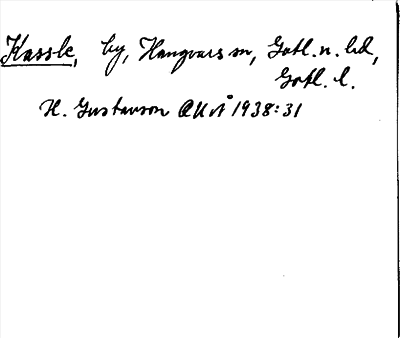 Kassle, by, Hangvars sn, Gotl. n. hd,
Gotl. l.
H. Gustavson 1938:31